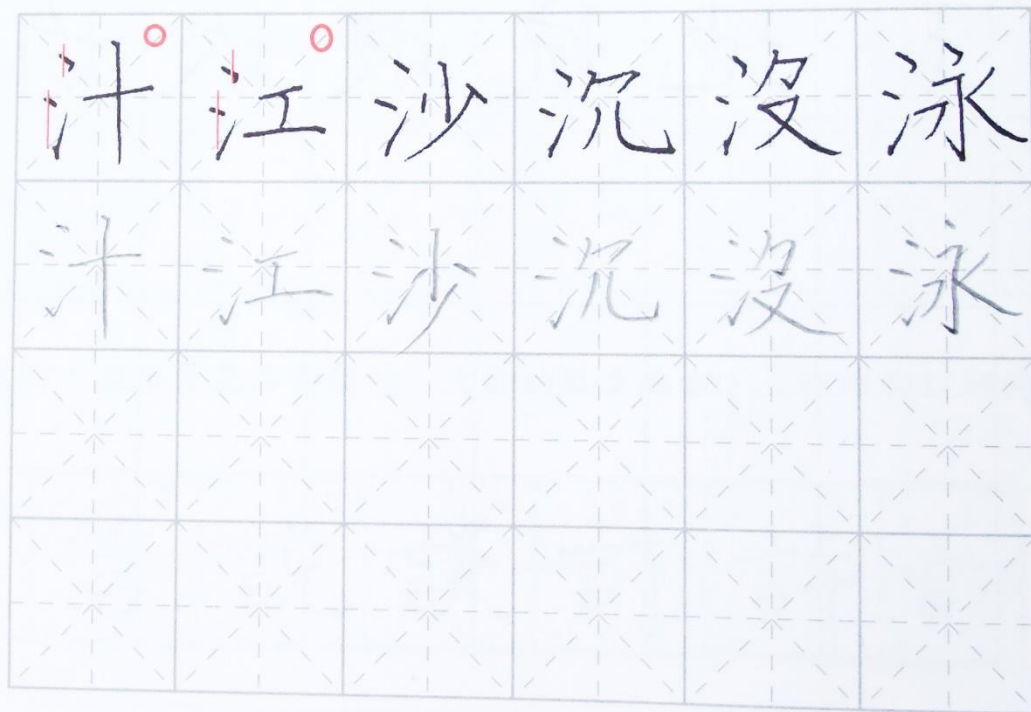 汁江沙沉没泳
汁江沙沉没泳